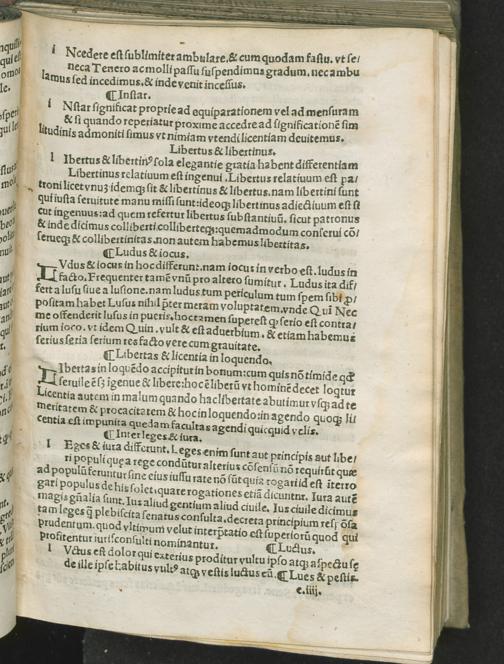 i Ncedere est sublimiter ambulare.& cum quodam fastu. vt se/
neca Tenero ac molli passu suspendimus gradum. nec ambu
lamus sed incedimus.& inde venit incessus.
¶Instar.
i Nstar significat proprie ad equiparationem vel ad mensuram
& si quando reperiatur proxime accedre ad significationē sim
litudinis admoniti simus vt nimiam vtendi licentiam deuitemus.
Libertus & libertinus.
l Ibertus & libertinꝰ sola elegantie gratia habent differentiam
Libertinus relatiuum est ingenui. Libertus relatiuum est pa/
troni licet vnuȝ idemqȝ sit & libertinus & libertus. nam libertini sunt
qui iusta seruitute manu missi sunt:ideoqȝ libertinus adiectiuum est si
cut ingenuus:ad quem refertur libertus substantiuū. sicut patronus
& inde dicimus colliberti.colliberteqȝ:quemadmodum conserui cō/
serueqȝ & collibertinitas.non autem habemus libertitas.
¶Ludus & iocus.
LVdus & iocus in hoc differunt.nam iocus in verbo est. ludus in
facto. Frequenter tamē vnū pro altero sumitur. Ludus ita dif/
fert a lusu siue a lusione. nam ludus tum periculum tum spem sibi ꝓ/
positam habet Lusus nihil ꝑter meram voluptatem.vnde Qui Nec
me offenderit lusus in pueris.hoc tamen superest ꝙ serio est contra/
rium ioco. vt idem Quin. vult & est aduerbium. & etiam habemus
serius seria serium res facto vere cum grauitate.
¶Libertas & licentia in loquendo.
LIbertas in loquēdo accipitur in bonum:cum quis nō timide qd̄
seruile ē sȝ īgenue & libere:hoc ē liberū vt hominē decet loqtur
Licentia autem in malum quando hac libertate abutimur vsqȝ ad te
meritatem & procacitatem & hoc in loquendo:in agendo quoqȝ li/
centia est impunita quedam facultas agendi quicquid velis.
¶Inter leges & iura.
l Eges & iura differunt. Leges enim sunt aut principis aut libe/
ri populi que a rege condūtur alterius cōsensū nō requirūt que
ad populū feruntur sine eius iussu rate nō sūt quia rogari id est īterro
gari populus de his solet. quare rogationes etiā dicuntur. Iura autē
magis gn̄alia sunt. Ius aliud gentium aliud ciuile. Ius ciuile dicimus
tam leges q̄ plebiscita senatus consulta.decreta principum resp̄ ōsa
prudentum. quod vltimum velut interp̄tatio est superiorū quod qui
profitentur iurisconsulti nominantur. ¶Luctus.
l Vctus est dolor qui exterius proditur vultu ipso atqȝ aspectu se
de ille ipse habitus vultꝰ atqȝ vestis luctus eū. ¶Lues & pestis
e.iiij.